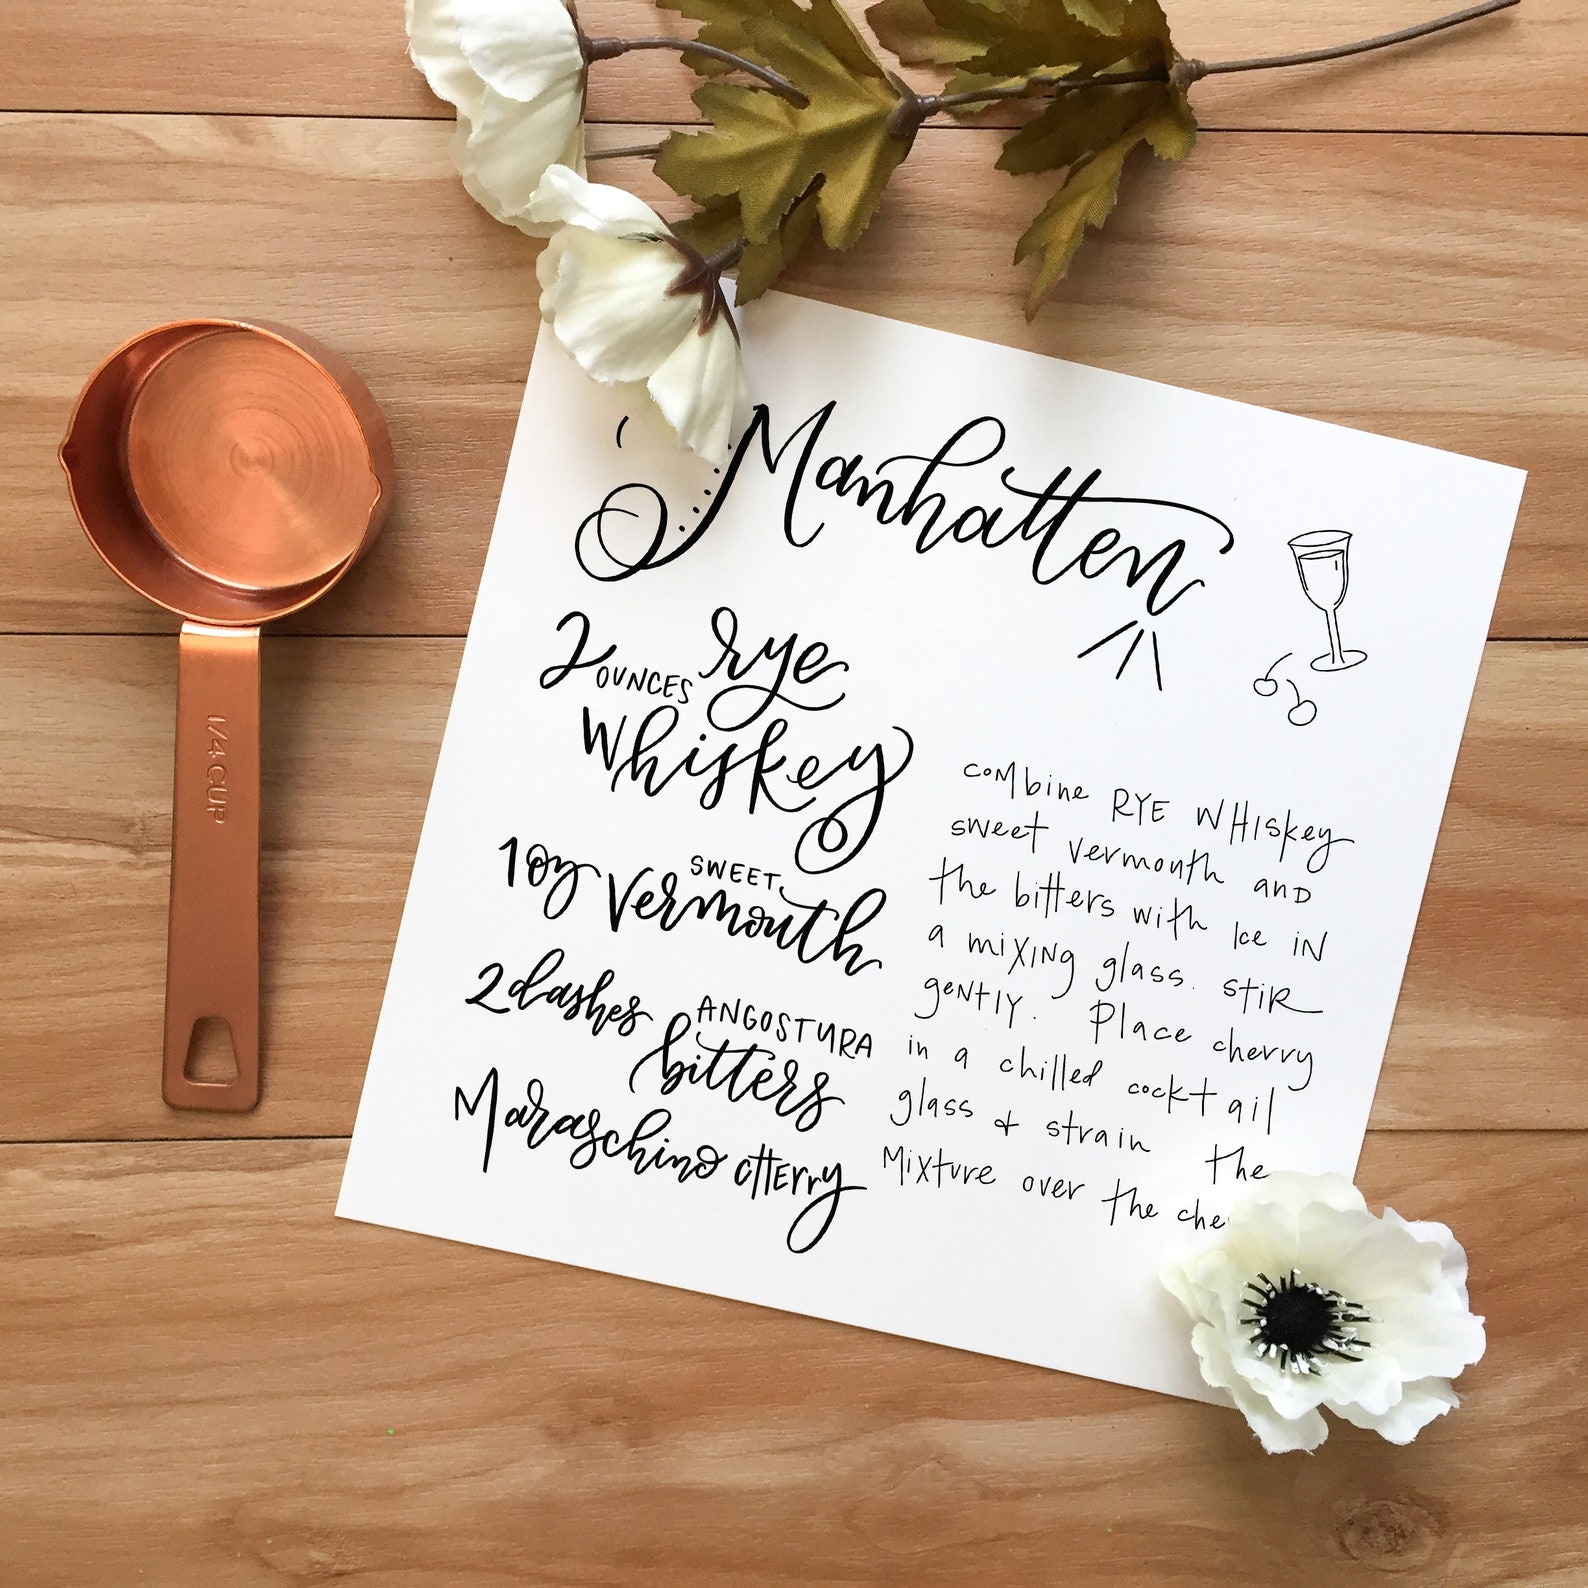 1/4 CUP
Manhatten
2 OUNCES rye
Whiskey
1 oz SWEET
Vermouth
2 dashes ANGOSTURA
bitters
Maraschino cherry
combine RYE WHiskey
sweet vermouth and
the bitters with Ice iN
a mixiNg glass. stiR
geNtly. Place cherry
in a chilled cocktail
glass & strain the
Mixture over the